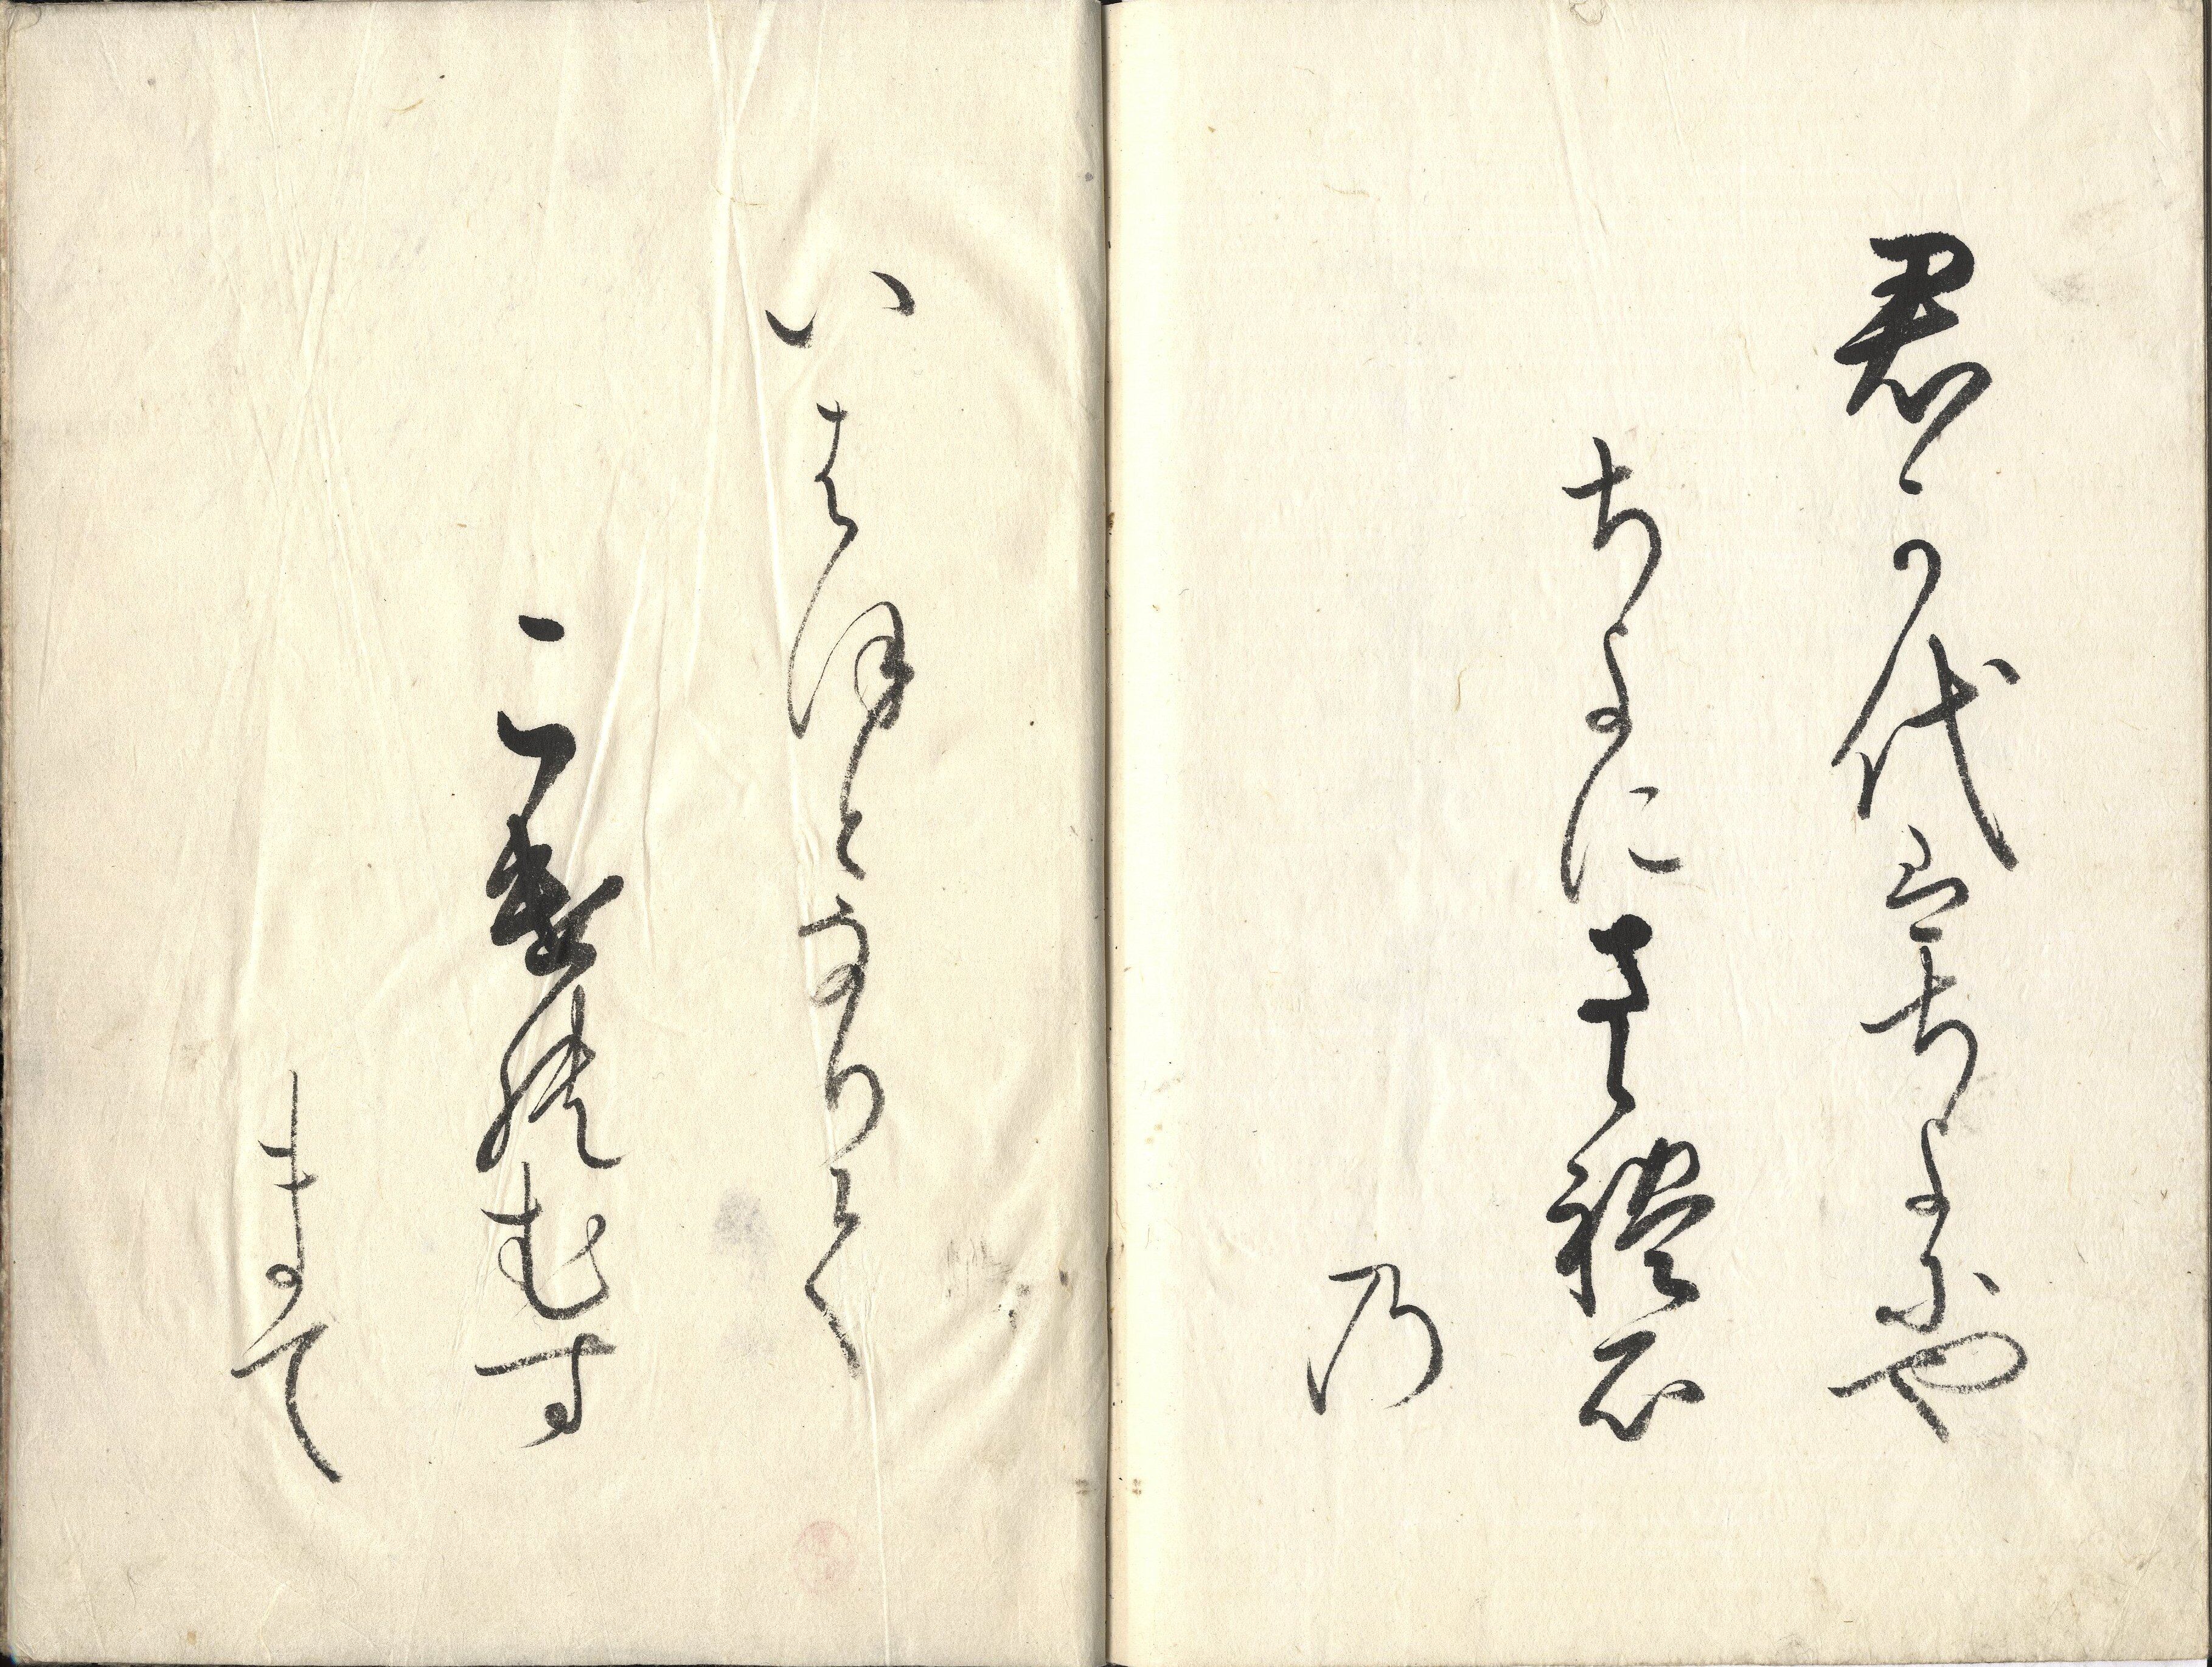 君か代ハちよ尓や
ちよにさゝ禮石
乃
いはほとなりて
こ遣能むす
まて